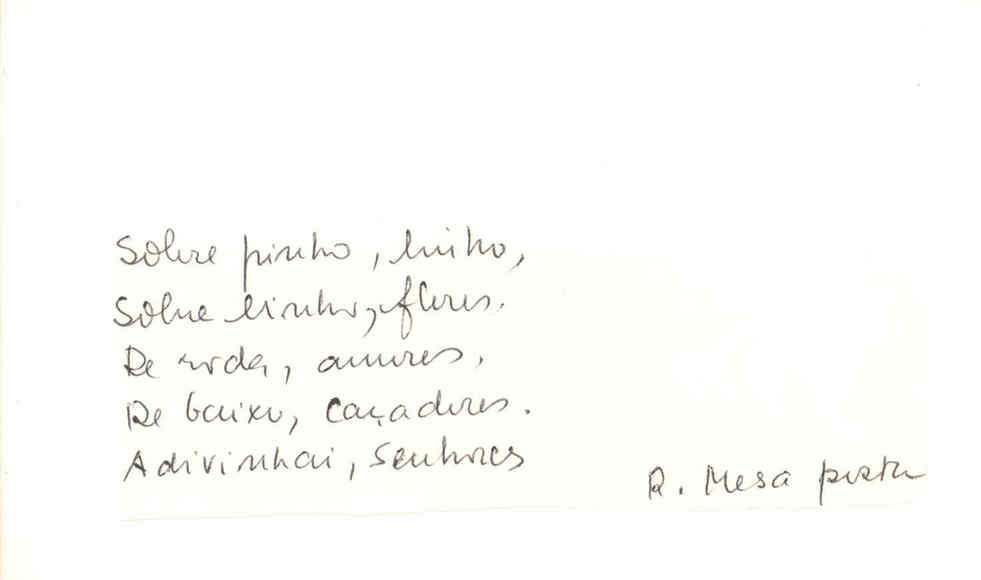 Sobre pinho, linho,
Sobre linho, flores.
De roda, amores,
De baixo, caçadores.
Adivinhai, senhores
R. Mesa posta